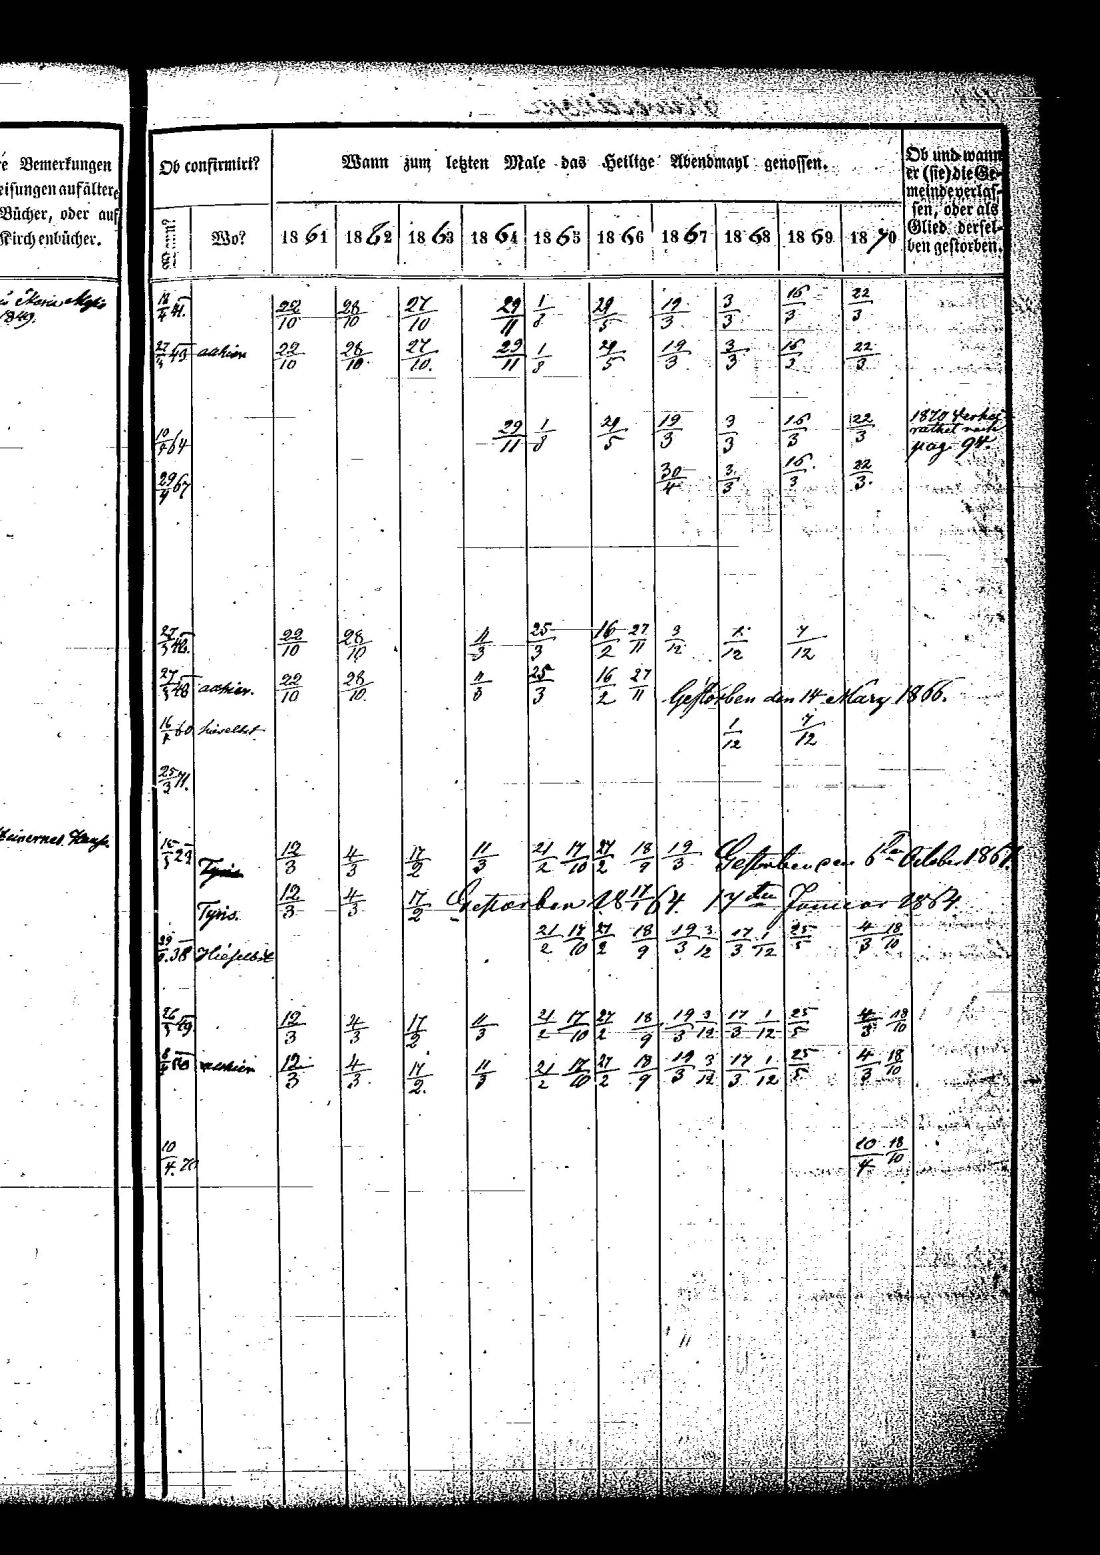 e Bemerkungen
eisungen auf ältere
Bücher, oder auf
Kirchenbücher.
Ob confirmirt?
Wann zum letzten Male das Heilige Abendmahl genossen.
Ob und wann
er (sie) die Ge-
meinde verlas-
sen, oder als
Glied dersel-
ben gestorben.
Wo?
1861 1862 1863 1864 1865 1866 1867 1868 1869 1870
1849.
18/4 41. 22/10 28/10 27/10 29/11 1/8 29/5 19/3 3/3 16/3 22/3
43 22/10 28/10 27/10. 29/11 1/8 29/5 19/3 3/3 16/3 22/3
10/4 64 29/11 1/8 29/5 19/3 3/3 16/3 22/3
1870 verhei-
rathet nach
pag 94.
29/4 67 30/4 3/3 16/3 22/3.
27/3 22/10 28/10 11/3 25/3 16/2 27/11 3/12 1/12 7/12
27/3 22/10 28/10. 25/3 16/2 27/11 Gestorben den 14 März 1866.
60 1/12 7/12
25/3 71.
23 12/3 4/3 17/2 11/3 21/2 17/10 27/2 18/9 19/3 Gestorben den 6ten October 1867.
Tyris. 12/3 4/3 17/2 Gestorben 18 17/1 64. 17ten Januar 1864.
38 21/2 17/10 27/2 18/9 19/3 3/12 17/3 1/12 25/5 4/3 18/10
26/3 49 12/3 4/3 17/2 11/3 21/2 17/10 27/2 18/9 19/3 3/12 17/3 1/12 25/5 4/3 18/10
50 12/3 4/3. 17/2. 11/3 21/2 17/10 27/2 18/9 19/3 3/12 17/3 1/12 25/5 4/3 18/10
10/4. 70 10/4 18/10